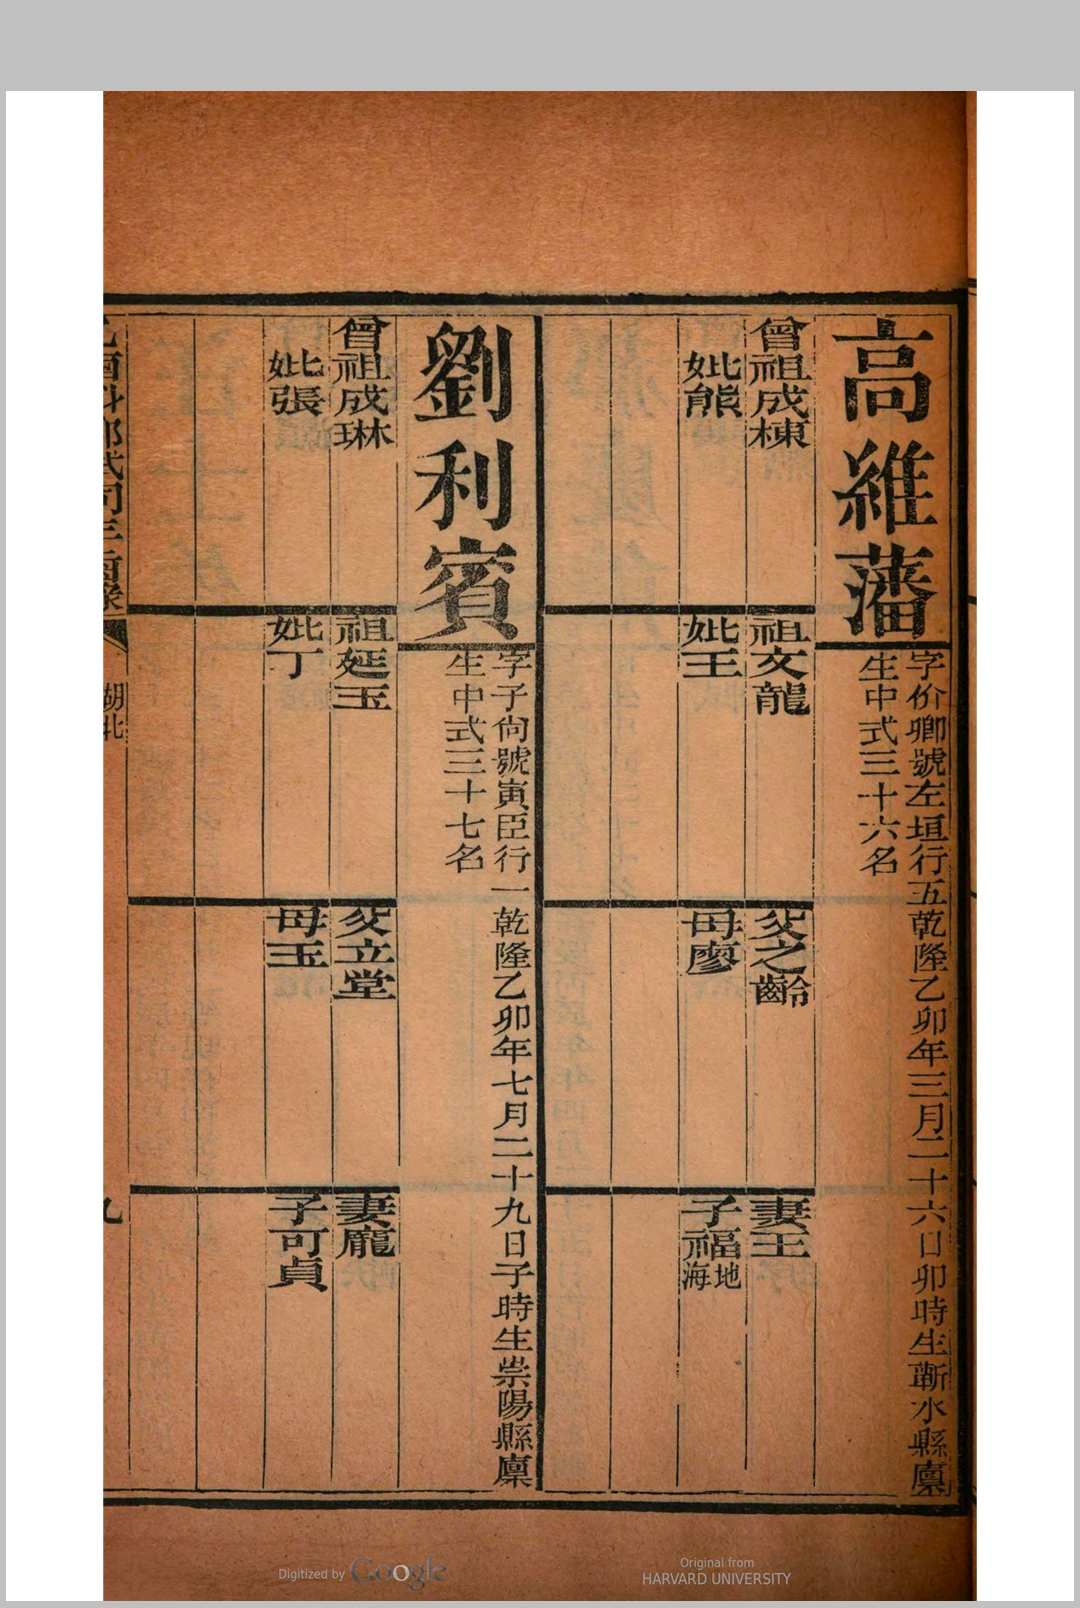 高維藩
字价卿號左垣行五乾隆乙卯年三月二十六日卯時生蘄水縣廩
生中式三十六名
曾祖成棟
祖文龍
父之齡
妻王
妣熊
妣王
母廖
子福地海
劉利賓
字子尙號寅臣行一乾隆乙卯年七月二十九日子時生崇陽縣廩
生中式三十七名
曾祖成琳
祖延玉
父立堂
妻龐
妣張
妣丁
母玉
子可貞
湖北
九
Digitized by Google
Original from
HARVARD UNIVERSITY